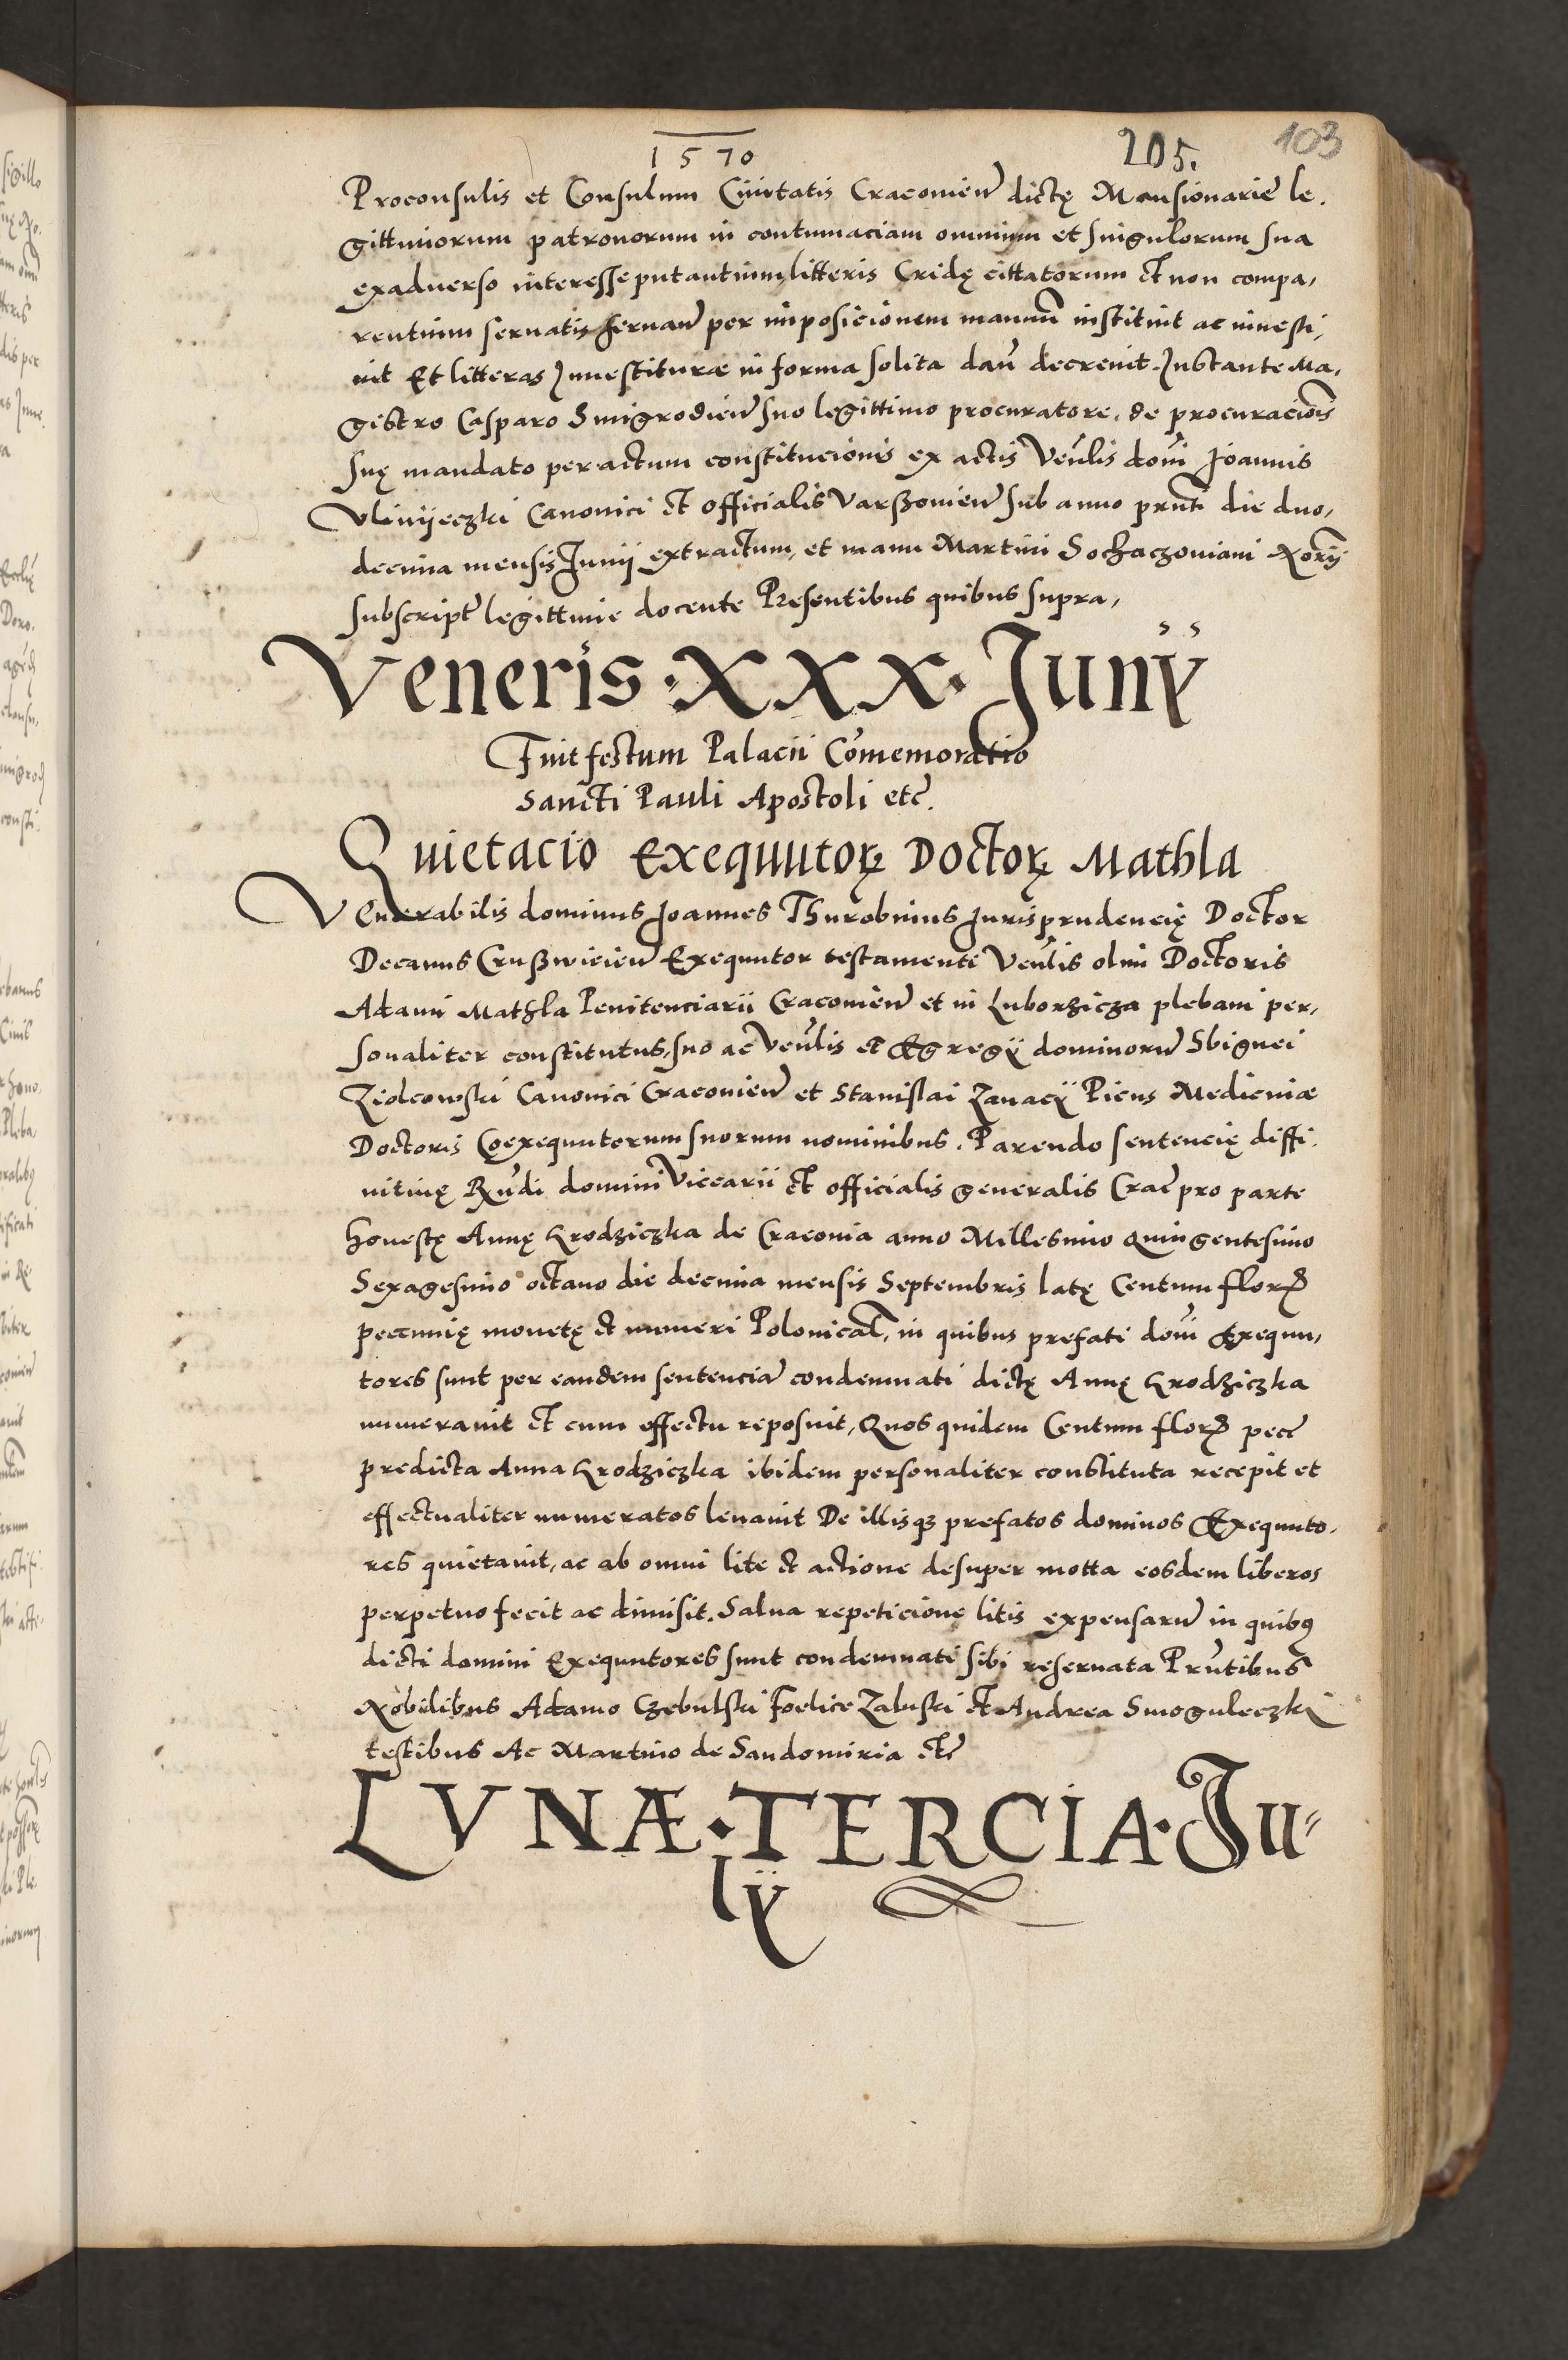 1570
205.
103
Proconsulis et Consulum Civitatis Cracovien dictę Mansionarie le,
gittimorum patronorum in contumaciam omnium et singulorum sua
exadverso interesse putantium, litteris Cridę cittatorum et non compa,
rentium servatis servan per imposicionem manuū instituit ac investi,
vit Et litteras Investituræ in forma solita dan̄ decrevit. Instante Ma,
gistro Casparo Smigrodien suo legittimo procuratore, de procuracio͞is
suę mandato per actum constitucionis ex actis Ven̄lis dom̄ Joannis
Vliniieczki Canonici et officialis Varßovien sub anno prn̄ti die duo,
decima mensis Junij extractum, et manu Martini Sochaczoviani Nōrij
subscript legittime docente Presentibus quibus supra,
Veneris · XXX · Junÿ
Fuit festum Palacii Com̄emoratio
Sancti Pauli Apostoli etc.
Quietacio Exequutoꝝ Doctoꝝ Mathla
Venerabilis dominus Joannes Thurobinus Jurisprudencię Doctor
Decanus Crußwicien Exequutor testamenti Ven̄lis olim Doctoris
Adami Mathla Penitenciarii Cracovien et in Luborzicza plebani per,
sonaliter constitutus, suo ac Ven̄lis et Egregÿ dominorū Sbignei
Ziolcowski Canonici Cracovien et Stanislai Zanacÿ Picus Medicinæ
Doctoris Coexequutorum suorum nominibus. Parendo sentencię diffi,
nitivę Rn̄di domini Vicearii et officialis generalis Crac pro parte
honestę Annę Krodziczka de Cracovia anno Millesimo Quingentesimo
Sexagesimo octavo die decima mensis Septembris latę Centum flor
pecunię monetę et numeri Polonical, in quibus prefati dom̄ Exequu,
tores sunt per eandem sentencia condemnati dictę Annę Krodziczka
numeravit et cum effectu reposuit, Quos quidem Centum flor pec
predicta Anna Krodziczka ibidem personaliter constituta recepit et
effectualiter numeratos levavit De illisqꝫ prefatos dominos Exequuto,
res quietavit, ac ab omni lite et actione desuper motta eosdem liberos
perpetuo fecit ac dimisit. Salva repeticione litis expensarū in quibꝰ
dicti domini Exequutores sunt condemnati sibi reservata Prn̄tibus
Nobilibus Adamo Czebulski Foelice Zaluski et Andrea Smoguleczki
testibus Ac Martino de Sandomiria etc
LVNÆ · TERCIA · Ju-
lÿ